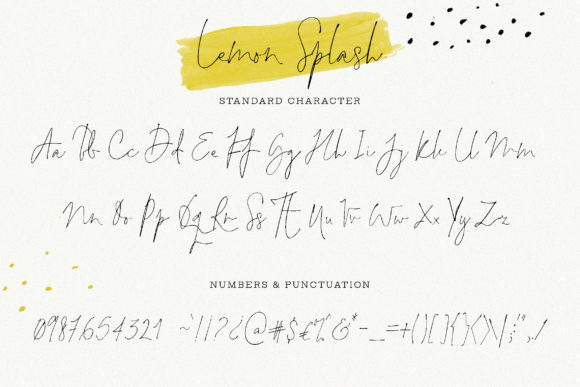 Lemon Splash
STANDARD CHARACTER
Aa Bb Cc Dd Ee Ff Gg Hh Ii Jj Kk Ll Mm
Nn Oo Pp Qq Rr Ss Tt Uu Vv Ww Xx Yy Zz
NUMBERS & PUNCTUATION
0987654321 ~`!¡?¿@#$€%&*-_=+()[]{}<>\|:;"",./